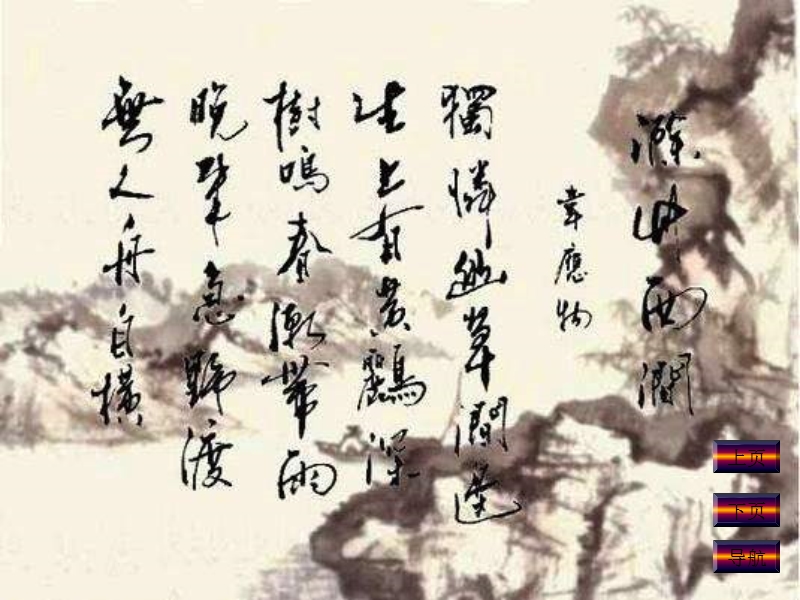 滁州西澗
韋應物
獨憐幽草澗邊
生上有黃鸝深
樹鳴春潮帶雨
晚來急野渡
無人舟自橫
上页
下页
导航